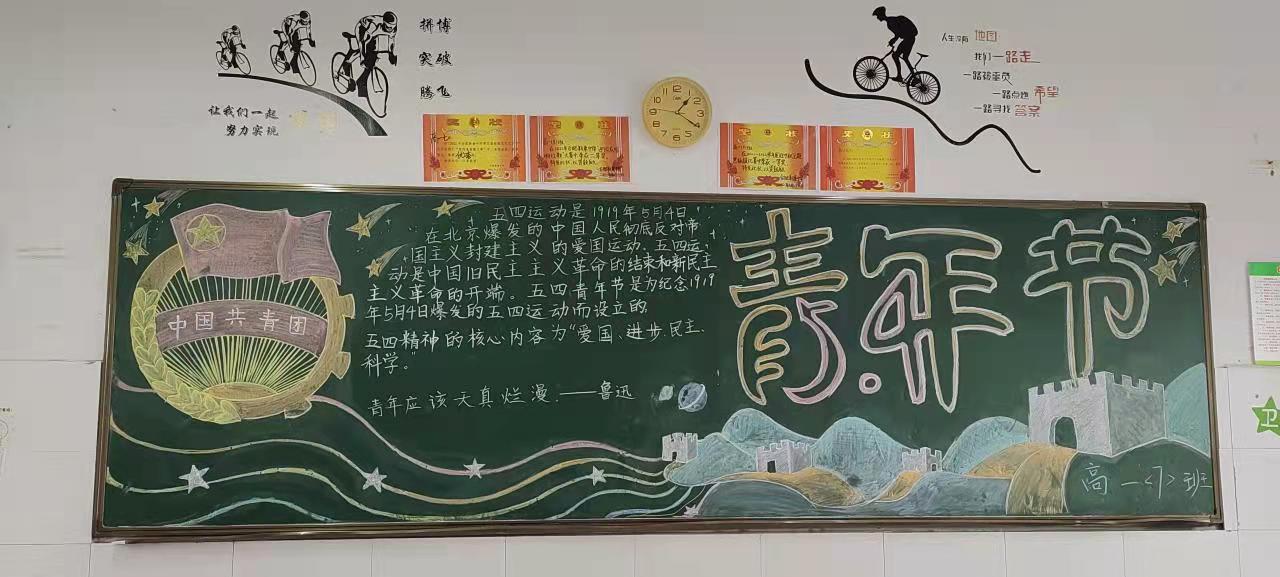 拼博
突破
腾飞
让我们一起
努力实现
人生没有地图
我们一路走
一路被重负
一路点燃希望
一路寻找答案
中国共青团
五四运动是1919年5月4日
在北京爆发的中国人民彻底反对帝
国主义封建主义的爱国运动。五四运
动是中国旧民主主义革命的结束和新民主
主义革命的开端。五四青年节是为纪念1919
年5月4日爆发的五四运动而设立的
五四精神的核心内容为“爱国、进步、民主、
科学。”
青年应该天真烂漫.——鲁迅
青年节
高一<7>班
卫